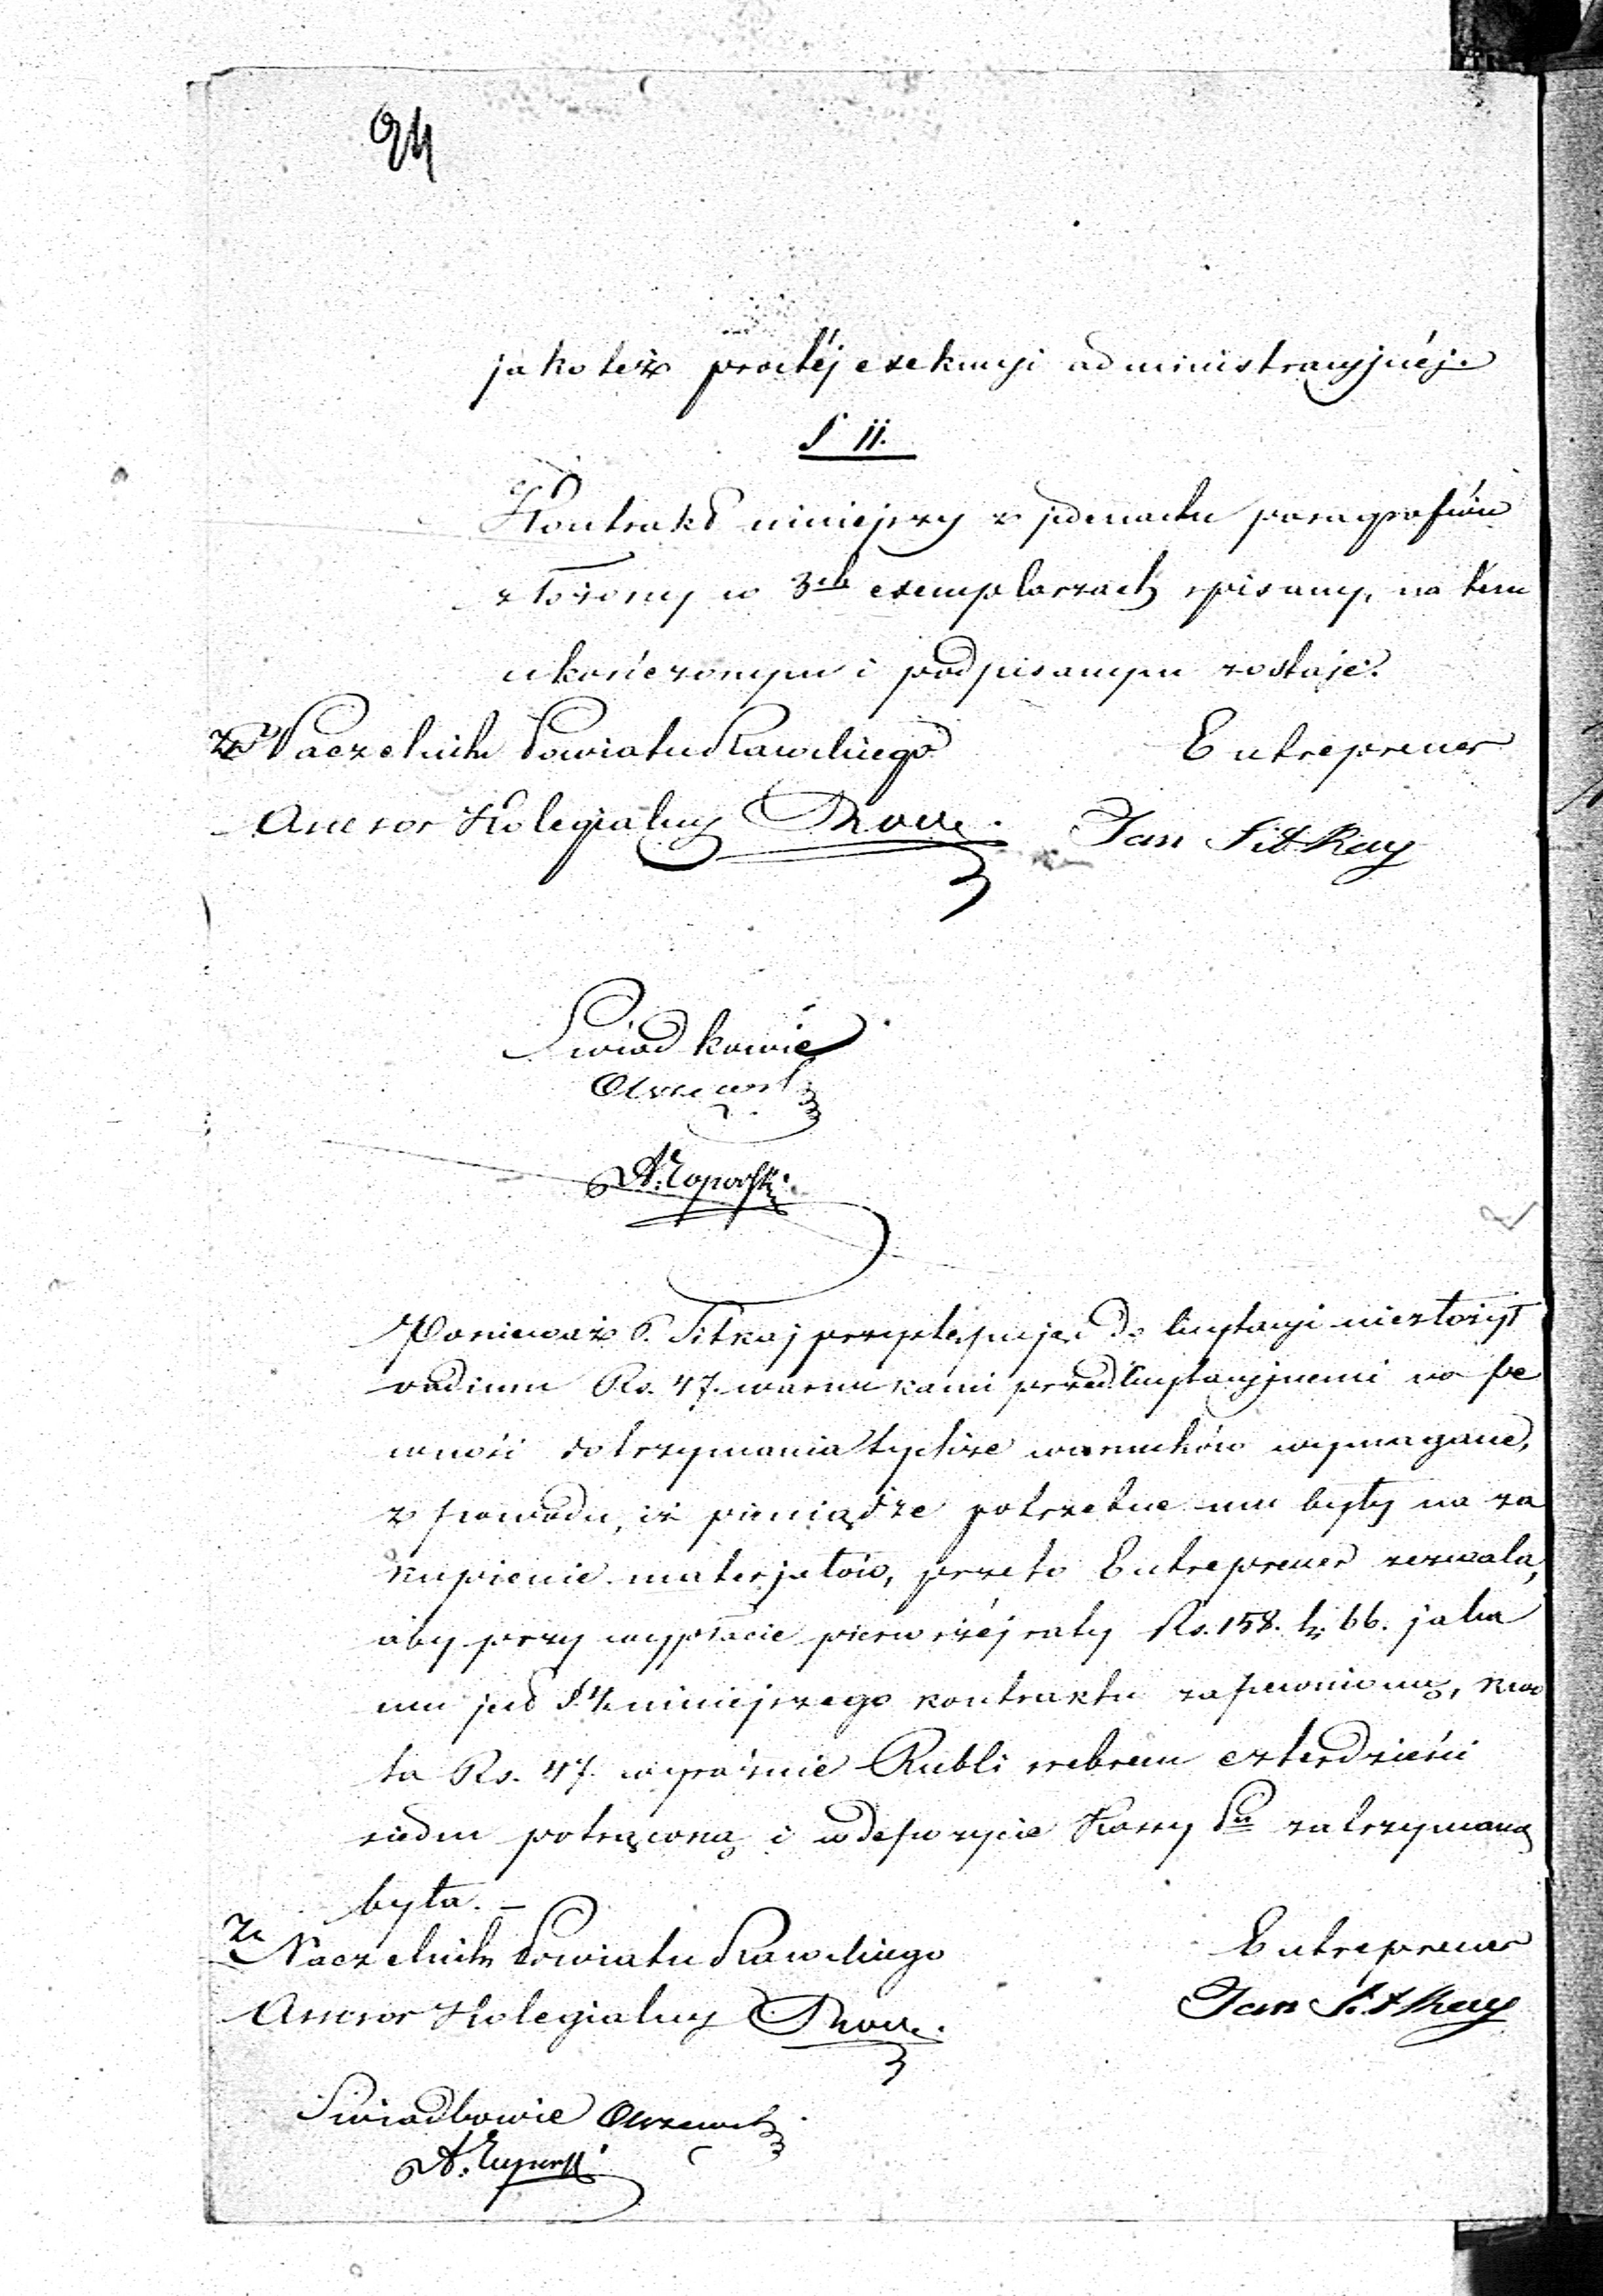 24
jako też prostéj exekucyi administracyjnéj.
§ 11.
Kontrakt niniejszy z jedenastu paragrafów
złożony w 3ch exemplarzach spisany, na tem
ukończonym i podpisanym zostaje.
za Naczelnika Powiatu Rawskiego Entreprener
Assesor Kolegialny Jan Sitkay
Świadkowie
Ponieważ P. Sitkaj przystępując do licytacyi niezłożył
vadium Rs. 47. warunkami przedlicytacyjnemi na pe
wność dotrzymania tychże warunków wymagane,
z powodu, iż pieniądze potrzebne mu były na za
kupienie materjałów, przeto Entreprener zezwala,
aby przy wypłacie pierwszéj raty Rs. 158. k. 66. jaka
mu jest § 4 niniejszego kontraktu zapewnioną, kwo
ta Rs. 47. wyraźnie Rubli srebrem czterdzieści
siedm potrąconą i w depozycie Kassy Pu zatrzymaną
była. –
Za Naczelnika Powiatu Rawskiego Entreprener
Assesor Kolegialny Jan Sitkay
Świadkowie